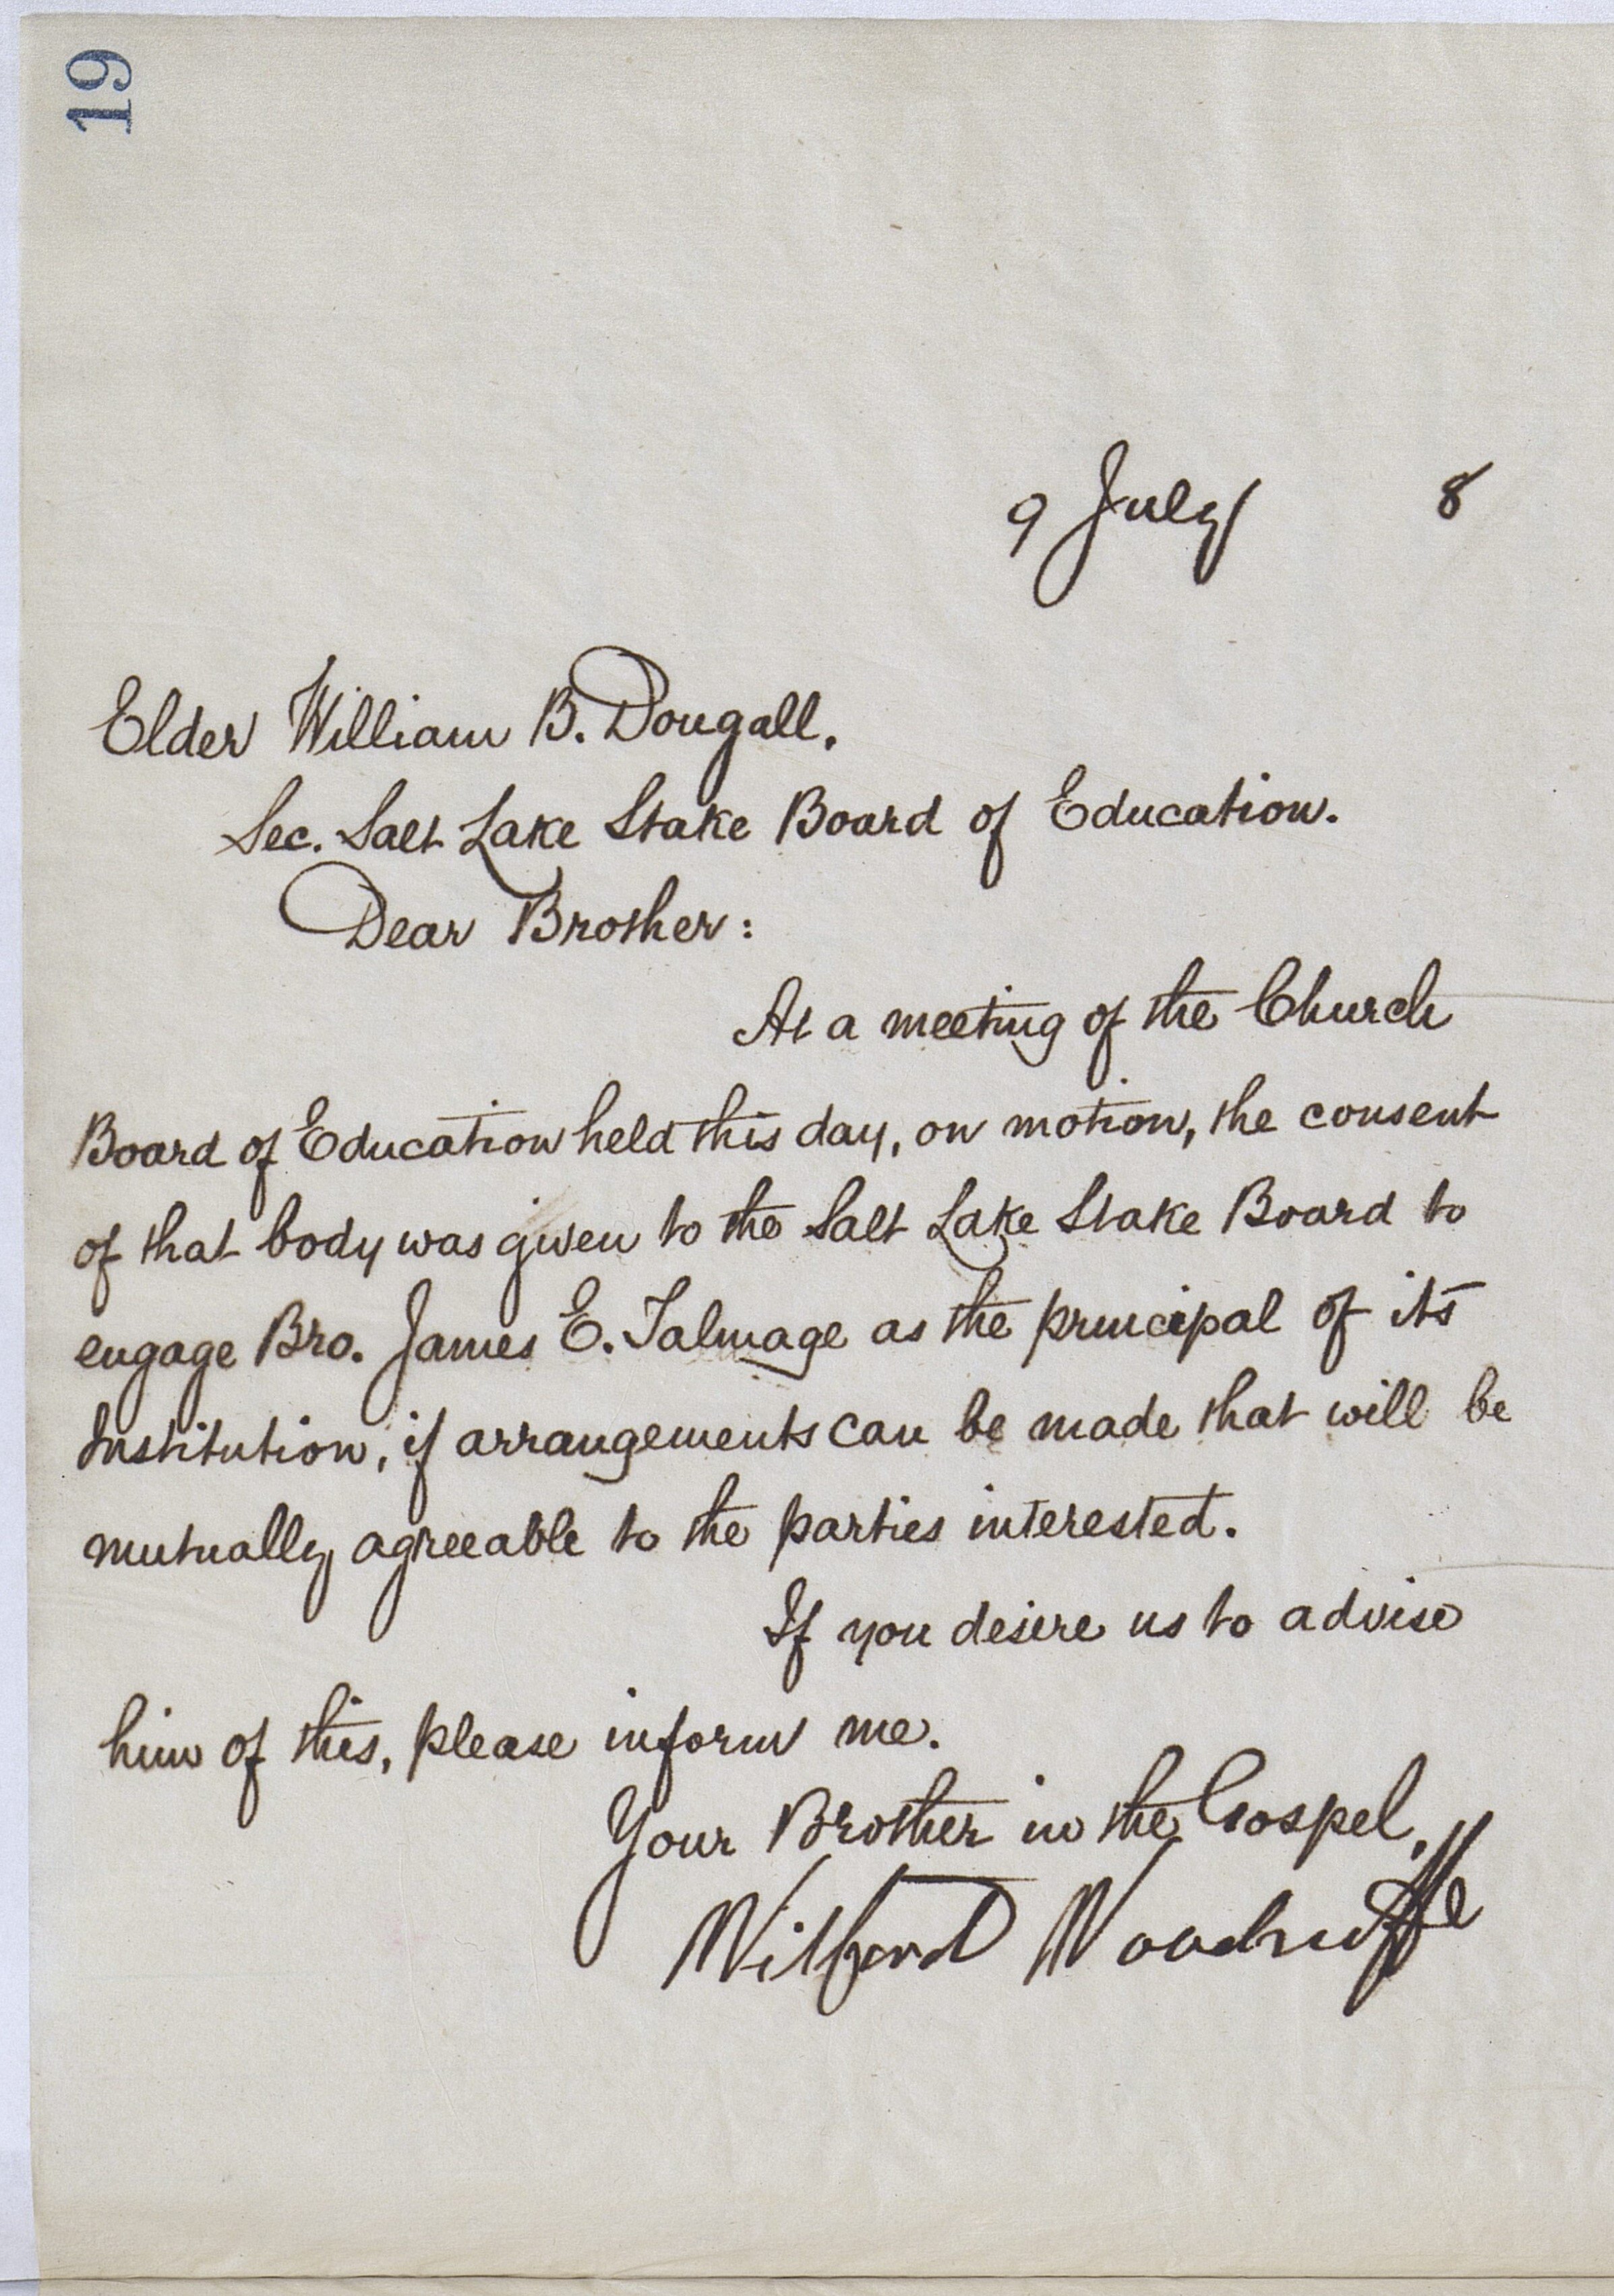 19
9 July 8
Elder William B. Dougall.
Sec. Salt Lake Stake Board of Education.
Dear Brother:
At a meeting of the Church
Board of Education held this day, on motion, the consent
of that body was given to the Salt Lake Stake Board to
engage Bro. James E. Talmage as the principal of its
Institution, if arrangements can be made that will be
mutually agreeable to the parties interested.
If you desire us to advise
him of this, please inform me.
Your Brother in the Gospel,
Wilford Woodruff